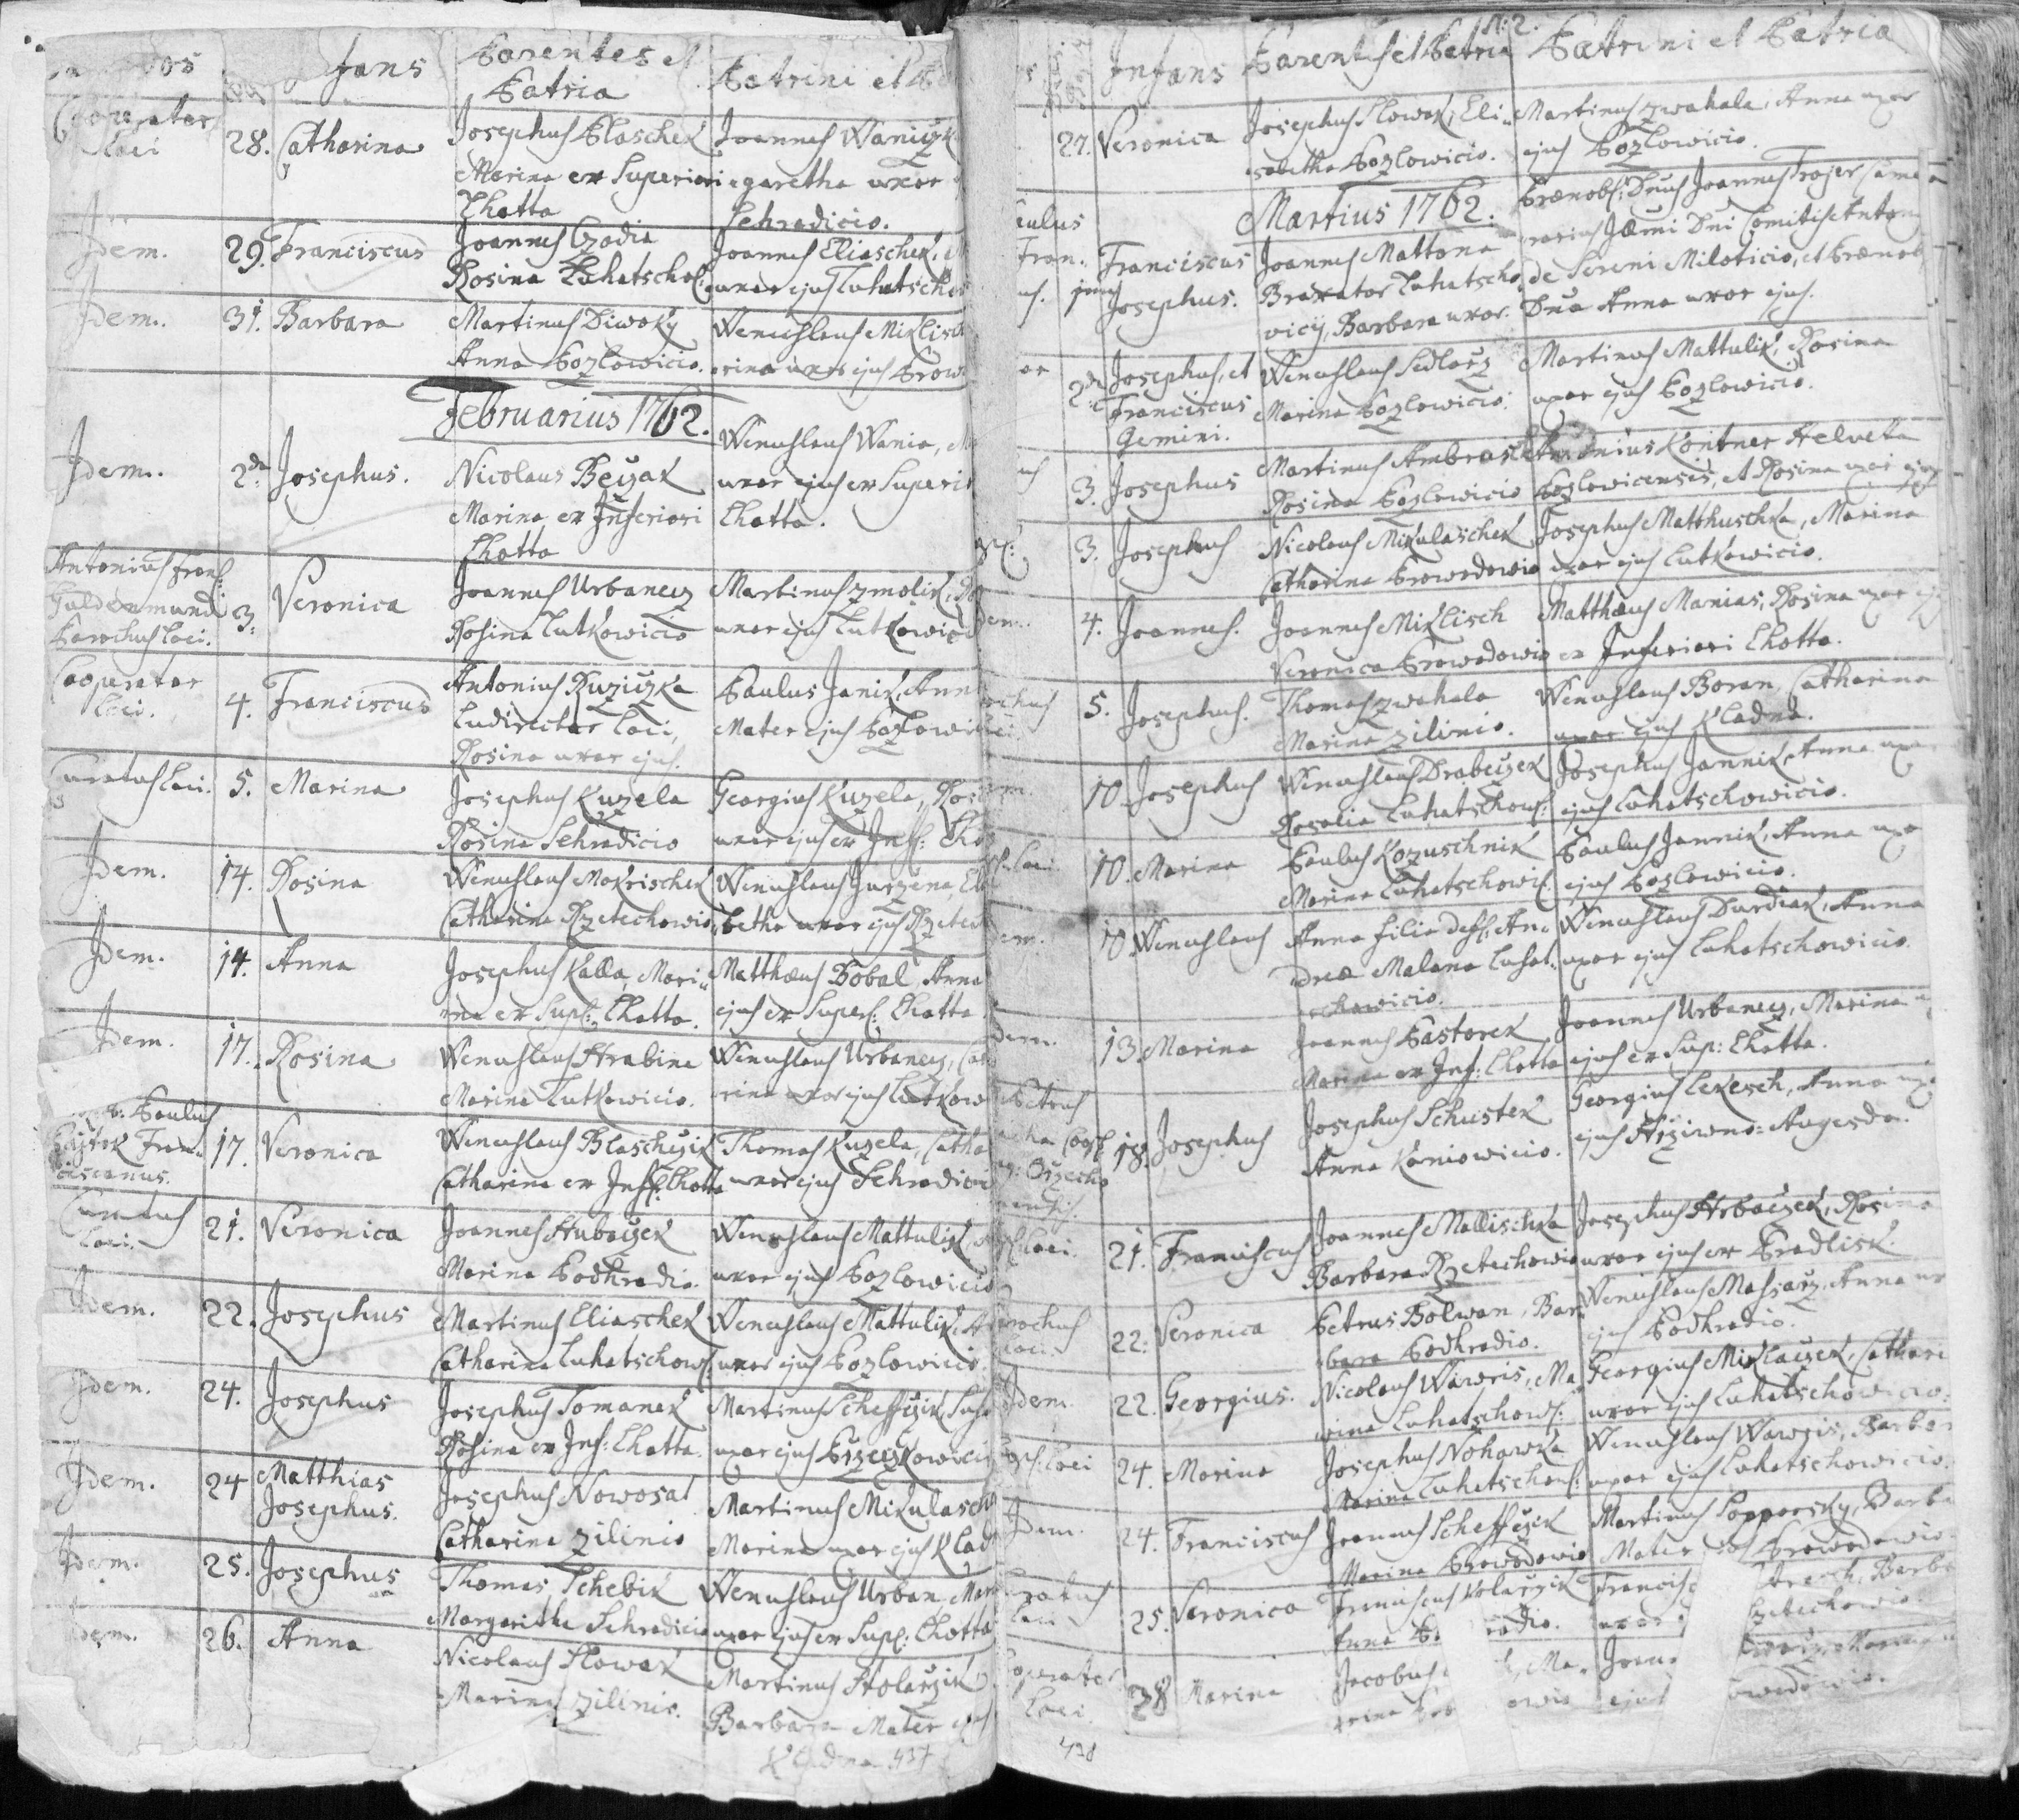 Infans
Parentes et
Patria
Patrini et
Cooperator
Loci
28. Catharina
Josephus Blaschek
Marina ex Superiori
Lhotta
Joannes Waniczk
garetha uxor
Sehradicio.
Idem. 29. Franciscus
Joannes Czodia
Rosina Luhatschof:
Joannes Eliaschek,
uxor ejus Luhatschow
Idem. 31. Barbara
Martinus Diwoky
Anna Pozlowicio.
Wenceslaus Miklisch
rina uxor ejus Prow
Februarius 1762.
Idem. 2da Josephus.
Nicolaus Beczak
Marina ex Inferiori
Lhotta
Wenceslaus Wania,
uxor ejus ex Superi
Lhotta.
Antonius Fran:
Guldenmund
Parochus Loci.
3. Veronica
Joannes Urbanecz
Rosina Lutkowicio
Martinus Zmolik,
uxor ejus Lutkowici
Cooperator
Loci.
4. Franciscus
Antonius Ruziczka
Ludirector Loci,
Rosina uxor ejus.
Paulus Janik, Ann
Mater ejus Pozlowi
Curatus Loci. 5. Marina
Josephus Kuzela
Rosina Sehradicio
Georgius Kuzela, Ros
uxor ejus ex Inf: Lho
Idem. 14. Rosina
Wenceslaus Mokrischek
Catharina Rzetechowio
Wenceslaus Jurzena, El
betha uxor ejus Rzetech
Idem. 14. Anna
Josephus Kalla, Mari
na ex Sup: Lhotta.
Matthæus Bobal, Anna
ejus ex Super: Lhotta
Idem. 17. Rosina
Wenceslaus Hrabina
Marina Lutkowicio.
Wenceslaus Urbanecz, Cat
rina uxor ejus Lutkow
Paulus
Hajtek Fran
ciscanus.
17. Veronica
Wenceslaus Blascheczik
Catharina ex Inf: Lhotta
Thomas Kuzela, Catha
uxor ejus Sehradici
Curatus
Loci.
21. Veronica
Joannes Hubaczek
Marina Podhradio.
Wenceslaus Mattulik,
uxor ejus Pozlowicio
Idem. 22. Josephus
Martinus Eliaschek
Catharina Luhatschow:
Wenceslaus Mattulik, A
uxor ejus Pozlowicio.
Idem. 24. Josephus
Josephus Tomanek
Rosina ex Inf: Lhotta.
Martinus Scheffczik,
uxor ejus Brzezkowici
Idem. 24 Matthias
Josephus.
Josephus Nowosad
Catharina Zilinio
Martinus Mikulasch
Marina uxor ejus Klad
Idem. 25. Josephus
Thomas Schebik
Margaritha Sehradicio
Wenceslaus Urban, Mar
uxor ejus ex Sup: Lhotta
Idem. 26. Anna
Nicolaus Slowak
Marina Zilinio.
Martinus Stolarzik
Barbara Mater ejus
Kladna. 437
N: 2.
Infans Parentes et Patria Patrini et Patria
27. Veronica
Josephus Slowak, Eli
sabetha Pozlowicio.
Martinus Zwahala, Anna uxor
ejus Pozlowicio.
Martius 1762.
Franciscus
Josephus.
Joannes Mattona
Braxator Luhatscho
vicij, Barbara uxor.
Prænob: Dnus Joannes Trojer Came
rarius Illmi Dni Comitis Anton
de Sereni Miloticio, et Prænob
Dna Anna uxor ejus.
2da Josephus, et
Franciscus
Gemini.
Wenceslaus Sedlarz
Marina Pozlowicio.
Martinus Mattulik, Rosina
uxor ejus Pozlowicio.
3. Josephus
Martinus Ambros
Rosina Pozlowicio
Antonius Kontner Helveta
Pozlowicensis, et Rosina uxor ejus
3. Josephus
Nicolaus Mikulaschek
Catharina Prowodowio
Josephus Matthuschka, Marina
uxor ejus Lutkowicio.
Idem. 4. Joannes.
Joannes Miklisch
Veronica Prowodowio
Matthæus Manias, Rosina uxor
ex Inferiori Lhotta.
5. Josephus.
Thomas Zwahala
Marina Zilinio.
Wenceslaus Boran, Catharina
uxor ejus Kladna.
10. Josephus
Wenceslaus Drabeczek
Rosalia Luhatschow:
Josephus Jannik, Anna uxor
ejus Luhatschowicio.
10. Marina
Paulus Kozuschnik
Marina Luhatschowic:
Paulus Jannik, Anna uxo
ejus Pozlowicio.
10. Wenceslaus
Anna filia deff: An
dreæ Malana Luhat
schowicio.
Wenceslaus Durdiak, Anna
uxor ejus Luhatschowicio.
13. Marina
Joannes Pastorek
Marina ex Inf: Lhotta
Joannes Urbanecz, Marina
ejus ex Sup: Lhotta.
Petrus
18. Josephus
Josephus Schustek
Anna Kaniowicio.
Georgius Lekesch, Anna uxo
ejus Hrziwno-Augezda.
Loci. 21. Franciscus
Joannes Mallischka
Barbara Rzetechowio
Josephus Hrbaczek, Rosina
uxor ejus ex Pradlisk.
Parochus
Loci.
22. Veronica
Petrus Bolwan, Bar
bara Podhradio.
Wenceslaus Massarz, Anna ux
ejus Podhradio.
Idem. 22. Georgius.
Nicolaus Wawris, Ma
rina Luhatschow:
Georgius Miklaczek, Cathari
uxor ejus Luhatschowicio.
Coop: Loci 24. Marina
Josephus Nohawka
Marina Luhatschow:
Wenceslaus Wawris, Barbar
uxor ejus Luhatschowicio.
Idem. 24. Franciscus
Joannes Scheffczik
Marina Prowodowio
Martinus Popporsky, Barba
Mater Prowodowio.
Curatus
Loci
25. Veronica
Franciscus Kolarzik
Anna
Francisc
uxor
Barba
Rzetechowio.
Cooperator
Loci.
28 Marina
Jacobus
rina
Ma
ejus
438